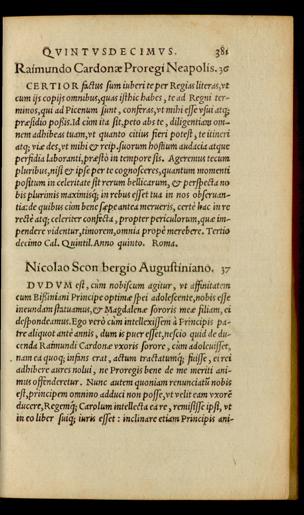 QVINTVSDECIMVS. 381
Raimundo Cardonæ Proregi Neapolis. 36
CERTIOR factus sum iuberi te per Regias literas, vt
cum ijs copijs omnibus, quas isthic habes, te ad Regni ter-
minos, qui ad Picenum sunt, conferas, vt mihi esse vsui atq;
præsidio possis. Id cùm ita sit, peto abs te, diligentiam om-
nem adhibeas tuam, vt quanto citius fieri potest, te itineri
atq; viæ des, vt mihi & reip. suorum hostium audacia atque
perfidia laboranti, præstò in tempore sis. Ageremus tecum
pluribus, nisi & ipse per te cognosceres, quantum momenti
positum in celeritate sit rerum bellicarum, & perspecta no
bis plurimis maximisq; in rebus esset tua in nos obseruan-
tia: de quibus cùm bene sæpe antea merueris, certè hac in re
rectè atq; celeriter confecta, propter periculorum, quæ im-
pendere videntur, timorem, omnia propè merebere. Tertio
decimo Cal. Quintil. Anno quinto. Roma.
Nicolao Scon bergio Augustiniano. 37
DVDVM est, cùm nobiscum agitur, vt affinitatem
cum Bisiniani Principe optimæ spei adolescente, nobis esse
ineundam statuamus, & Magdalenæ sororis meæ filiam, ei
despondeamus. Ego verò cùm intellexissem à Principis pa-
tre aliquot antè annis, dum is puer esset, nescio quid de du-
cenda Raimundi Cardonæ vxoris sorore, cùm adoleuisset,
nam ea quoq; infans erat, actum tractatumq; fuisse, ei rei
adhibere aures nolui, ne Proregis bene de me meriti ani-
mus offenderetur. Nunc autem quoniam renunciatũ nobis
est, principem omnino adduci non posse, vt velit eam vxorẽ
ducere, Regemq; Carolum intellecta ea re, remisisse ipsi, vt
in eo liber suiq; iuris esset: inclinare etiam Principis ani-